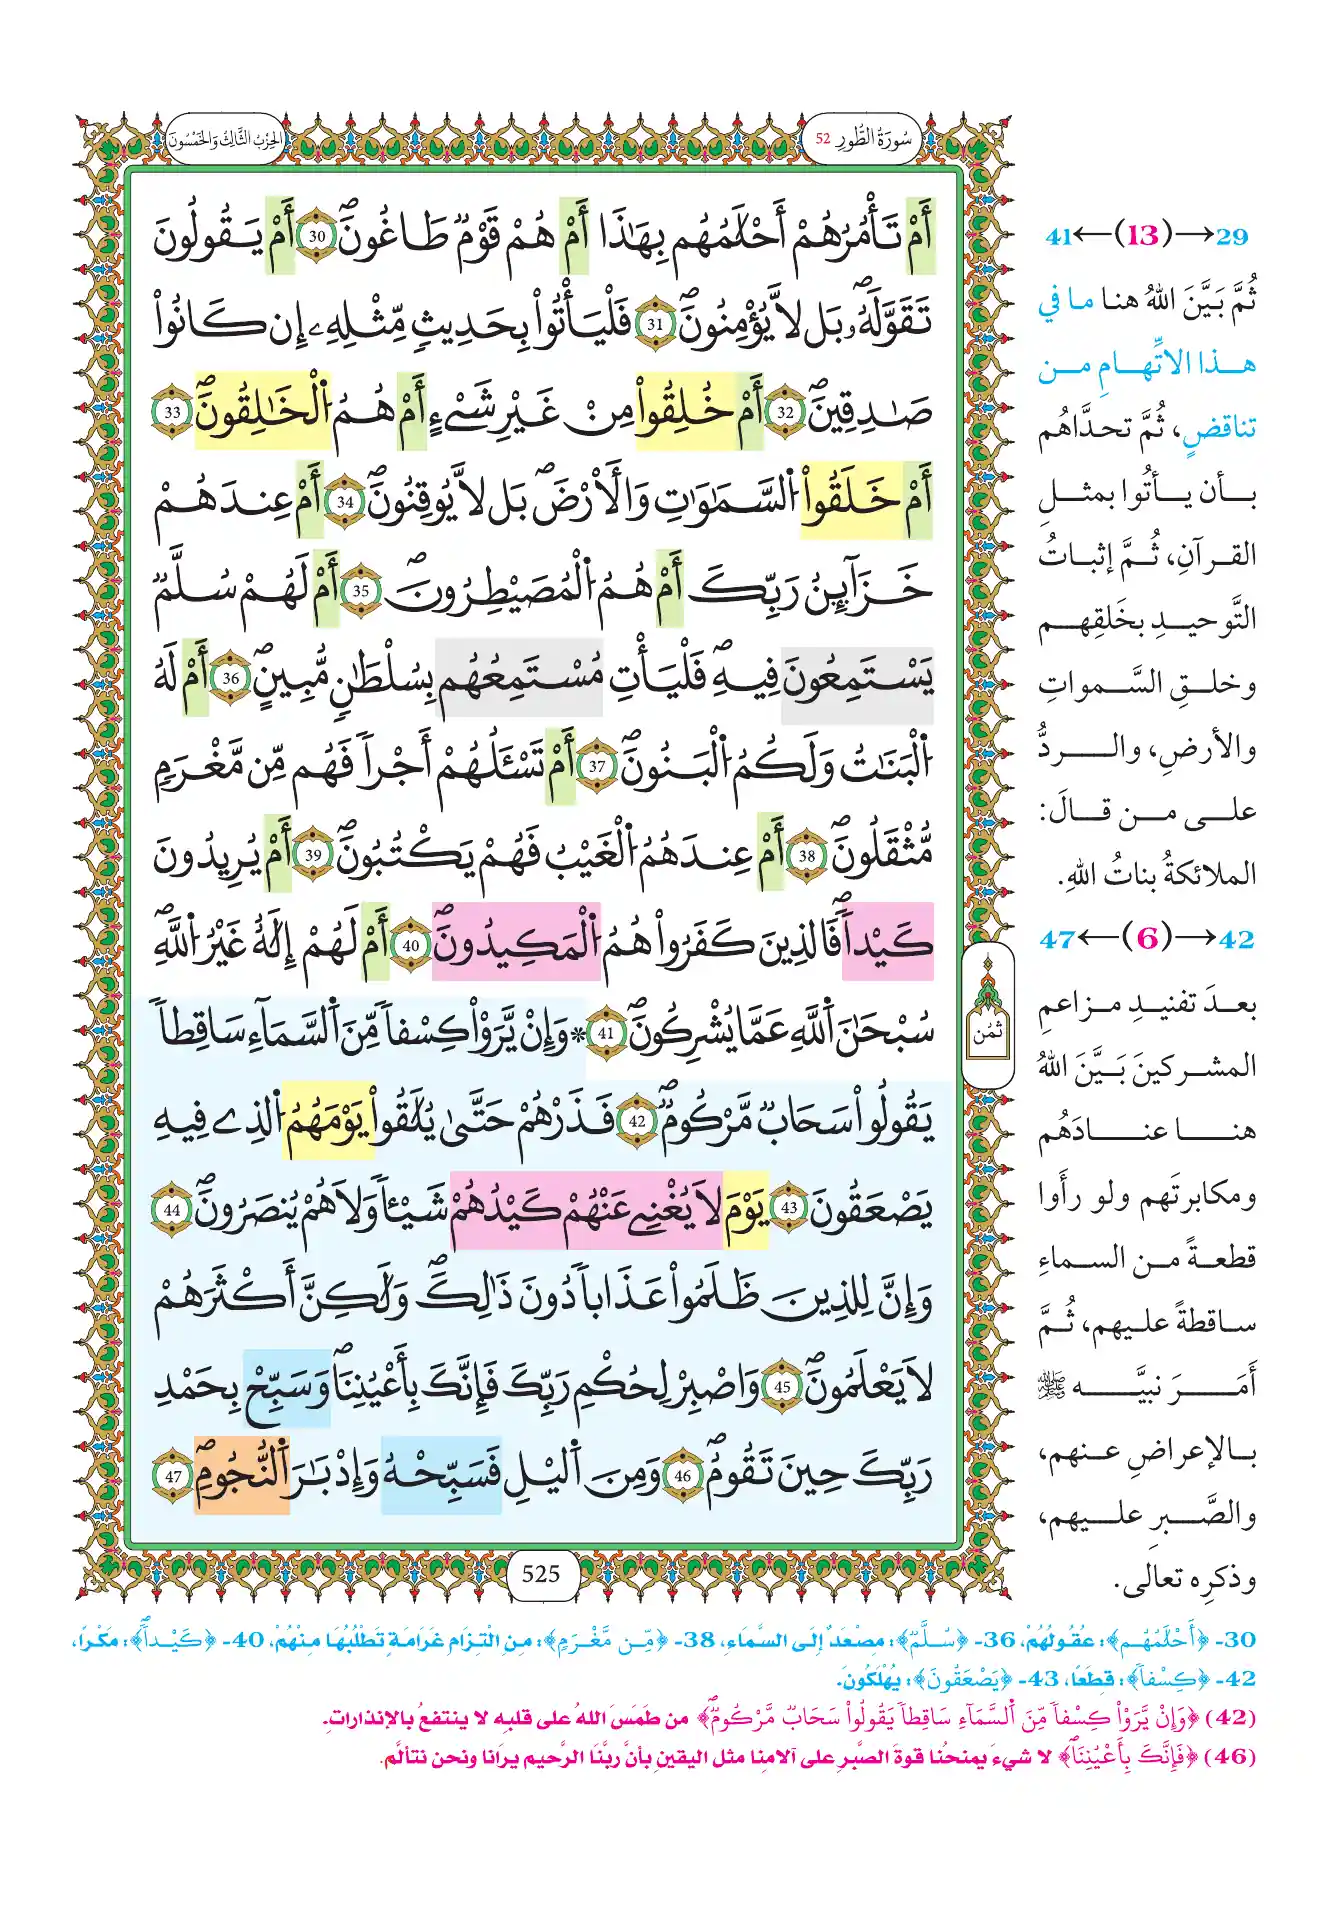 سُورَةُ الطُّورِ 52
الحِزْبُ الثَّالِثُ وَالخَمْسُونَ
أَمْ تَأْمُرُهُمْ أَحْلَٰمُهُم بِهَٰذَا أَمْ هُمْ قَوْمٌ طَاغُونَۖ 30 أَمْ يَقُولُونَ
تَقَوَّلَهُۥۖ بَل لَّا يُؤْمِنُونَۖ 31 فَلْيَأْتُواْ بِحَدِيثٍ مِّثْلِهِۦ إِن كَانُواْ
صَٰدِقِينَۖ 32 أَمْ خُلِقُواْ مِنْ غَيْرِ شَےْءٍ أَمْ هُمُ اُ۬لْخَٰلِقُونَۖ 33
أَمْ خَلَقُواْ اُ۬لسَّمَٰوَٰتِ وَالْأَرْضَۖ بَل لَّا يُوقِنُونَۖ 34 أَمْ عِندَهُمْ
خَزَآئِنُ رَبِّكَ أَمْ هُمُ اُ۬لْمُصَيْطِرُونَۖ 35 أَمْ لَهُمْ سُلَّمٌ
يَسْتَمِعُونَ فِيهِۖ فَلْيَأْتِ مُسْتَمِعُهُم بِسُلْطَٰنٍ مُّبِينٍۖ 36 أَمْ لَهُ
اُ۬لْبَنَٰتُ وَلَكُمُ اُ۬لْبَنُونَۖ 37 أَمْ تَسْـَٔلُهُمْ أَجْراً فَهُم مِّن مَّغْرَمٍ
مُّثْقَلُونَۖ 38 أَمْ عِندَهُمُ اُ۬لْغَيْبُ فَهُمْ يَكْتُبُونَۖ 39 أَمْ يُرِيدُونَ
كَيْداًۖ فَالذِينَ كَفَرُواْ هُمُ اُ۬لْمَكِيدُونَۖ 40 أَمْ لَهُمْ إِلَٰهٌ غَيْرُ اُ۬للَّهِۖ
سُبْحَٰنَ اَ۬للَّهِ عَمَّا يُشْرِكُونَۖ 41 * وَإِنْ يَّرَوْاْ كِسْفاً مِّنَ اَ۬لسَّمَآءِ سَاقِطاً
يَقُولُواْ سَحَابٌ مَّرْكُومٌۖ 42 فَذَرْهُمْ حَتَّىٰ يُلَٰقُواْ يَوْمَهُمُ اُ۬لذِے فِيهِ
يَصْعَقُونَ 43 يَوْمَ لَا يُغْنِے عَنْهُمْ كَيْدُهُمْ شَيْـٔاً وَلَا هُمْ يُنصَرُونَۖ 44
وَإِنَّ لِلذِينَ ظَلَمُواْ عَذَاباً دُونَ ذَٰلِكَۖ وَلَٰكِنَّ أَكْثَرَهُمْ
لَا يَعْلَمُونَۖ 45 وَاصْبِرْ لِحُكْمِ رَبِّكَ فَإِنَّكَ بِأَعْيُنِنَاۖ وَسَبِّحْ بِحَمْدِ
رَبِّكَ حِينَ تَقُومُۖ 46 وَمِنَ اَ۬ليْلِ فَسَبِّحْهُ وَإِدْبَٰرَ اَ۬لنُّجُومِۖ 47
ثُمُن
525
29→(13)←41
ثُمَّ بَيَّنَ اللهُ هنا ما في
هذا الاتِّهامِ من
تناقضٍ، ثُمَّ تحدَّاهُم
بأن يأتُوا بمثلِ
القرآنِ، ثُمَّ إثباتُ
التَّوحيدِ بخَلقِهم
وخلقِ السَّمواتِ
والأرضِ، والردُّ
على من قالَ:
الملائكةُ بناتُ اللهِ.
42→(6)←47
بعدَ تفنيدِ مزاعمِ
المشركينَ بَيَّنَ اللهُ
هنا عنادَهُم
ومكابرتَهم ولو رأَوا
قطعةً من السماءِ
ساقطةً عليهم، ثُمَّ
أَمَرَ نبيَّه ﷺ
بالإعراضِ عنهم،
والصَّبرِ عليهم،
وذكرِه تعالى.
30- ﴿أَحْلَٰمُهُم﴾: عُقُولُهُمْ، 36- ﴿سُلَّمٌ﴾: مِصْعَدٌ إِلَى السَّمَاءِ، 38- ﴿مِّن مَّغْرَمٍ﴾: مِنِ الْتِزَامِ غَرَامَةٍ تَطْلُبُهَا مِنْهُمْ، 40- ﴿كَيْداًۖ﴾: مَكْرًا،
42- ﴿كِسْفاً﴾: قِطَعًا، 43- ﴿يَصْعَقُونَ﴾: يُهْلَكُونَ.
(42) ﴿وَإِنْ يَّرَوْاْ كِسْفاً مِّنَ اَ۬لسَّمَآءِ سَاقِطاً يَقُولُواْ سَحَابٌ مَّرْكُومٌۖ﴾ من طَمَسَ اللهُ على قلبِه لا ينتفعُ بالإنذاراتِ.
(46) ﴿فَإِنَّكَ بِأَعْيُنِنَاۖ﴾ لا شيءَ يمنحُنا قوةَ الصَّبرِ على آلامِنا مثل اليقينِ بأنَّ ربَّنَا الرَّحيم يرَانا ونحن نتألَّم.